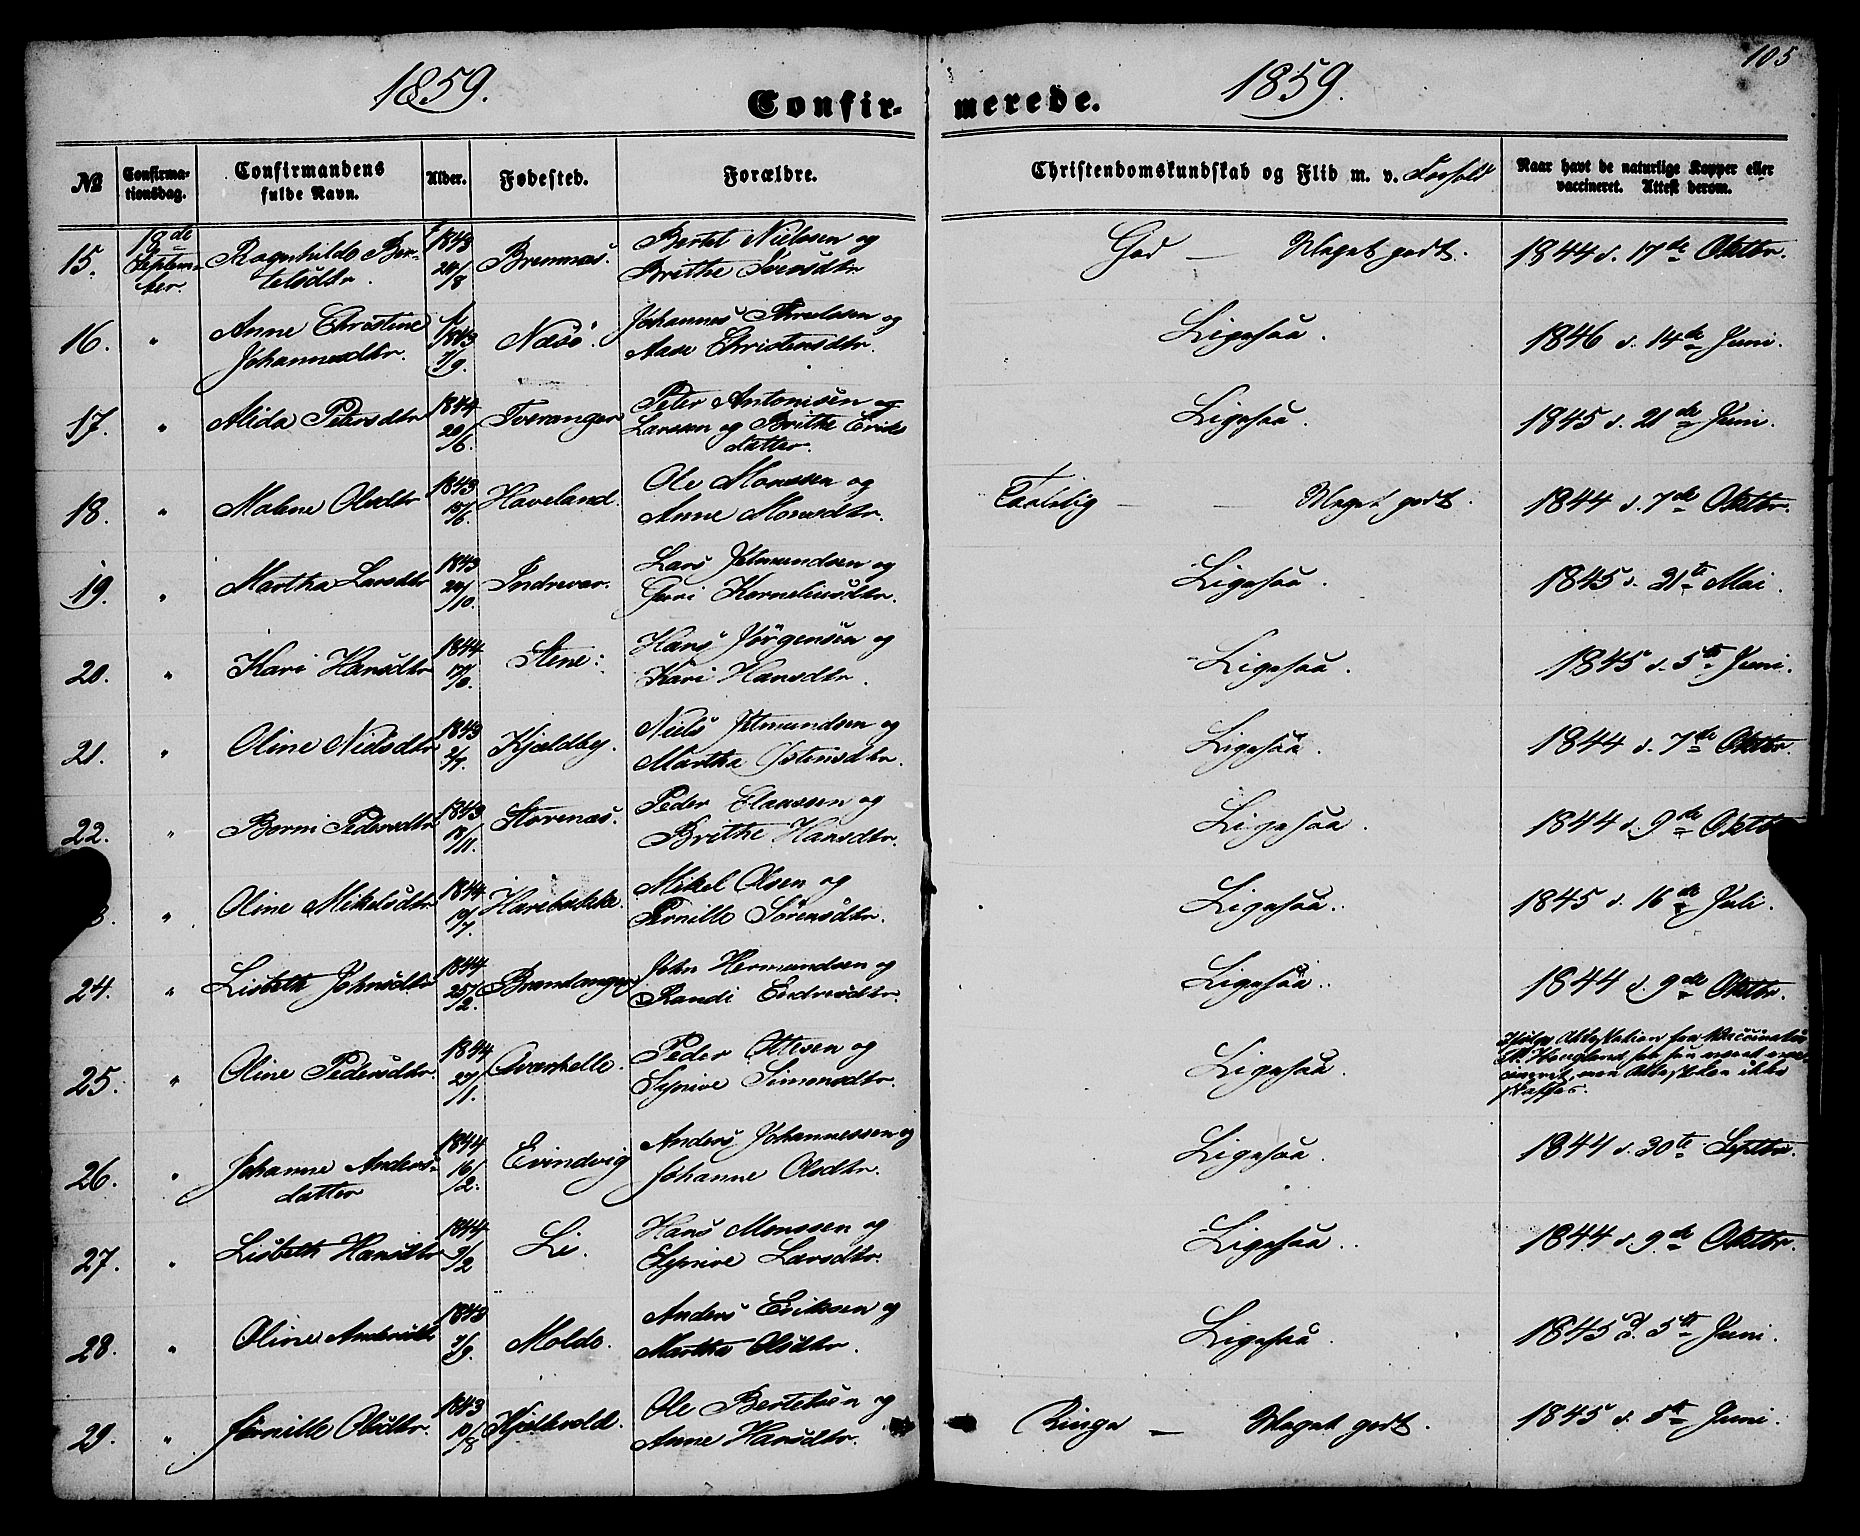 105
1859.
1859.
Confir-
merede.
№
Confirma-
tionsdag.
Confirmandens
fulde Navn.
Alder.
Fødested.
Forældre.
Christendomskundskab og Flid m. v. Forhold
Naar havt de naturlige Kopper eller
vaccineret. Attest derom.
15.
18de
Septem-
ber.
Ragnhilde Ber-
telsdtr.
1843
20/8
Brennæs.
Bertel Nielsen og
Brithe Iversdtr
God — Meget godt.
1844 d. 17de Oktbr.
16.
"
Anne Christine
Johannesdtr.
1843
7/9.
Næsø.
Johannes Thralesen og
Aase Christensdtr.
Ligesaa.
1846 d. 14de Juni.
17.
"
Alida Petersdtr
1844
20/6.
Tveranger
Peter Antonisen og
Larssen og Brithe Eriks
datter.
Ligesaa.
1845 d. 21de Juni.
18.
"
Malene Olsdtr
1843
15/6.
Haveland.
Ole Monssen og
Anne Monsdtr.
Taalelig — — Meget godt.
1844 d. 7de Oktbr.
19.
"
Martha Larsdtr
1843
20/10.
Indrevær.
Lars Iltmundsen og
Guri Korneliusdtr.
Ligesaa.
1845 d. 31te Mai.
20.
"
Kari Hansdtr
1844
Stene:
Hans Jørgensen og
Kari Hansdtr.
Ligesaa.
1845 d. 5te Juni.
21.
"
Oline Nielsdtr
1843
2/7.
Kjældby.
Niels Iltmundsen og
Martha Ostensdtr.
Ligesaa.
1844 d. 7de Oktbr.
22.
"
Berni Pedersdtr
1843
18/11.
Storenæs.
Peder Claussen og
Brithe Hansdtr.
Ligesaa.
1844 d. 9de Oktb
3.
"
Oline Mikelsdtr
1844
19/7.
Harebakke.
Mikel Olsen og
Pernille Sørensdtr.
Ligesaa.
1845 d. 16de Juli.
24.
"
Lisbeth Johnsdtr
1844
25/2.
Brandanger
John Hermundsen og
Randi Endresdtr.
Ligesaa.
1844 d. 9de Oktbr.
25.
"
Oline Pedersdtr.
1844
27/1.
Qvernhelle.
Peder Ottesen og
Synive Simonsdtr.
Ligesaa.
Ifølge Attestation fra Vaccinatør
Hougland skal hun være vac-
cineret, men Attest kan ikke
skaffes.
26.
"
Johanne Anders-
datter
1844
16/2.
Evindvig
Anders Johannessen og
Johanne Olsdtr.
Ligesaa.
1844 d. 30te Septbr.
27.
"
Lisbeth Hansdtr
1844
9/2
Li.
Hans Monssen og
Synive Larsdtr.
Ligesaa.
1844 d. 9de Oktbr.
28.
"
Oline Andersdtr
1843
7/9.
Molde.
Anders Erikssen og
Martha Olsdtr.
Ligesaa.
1845 d. 5te Juni.
29.
"
Pernille Olsdtr.
1843
10/8
Kjelkvold.
Ole Bertelsen og
Anne Hansdtr.
Ringe — Meget godt.
1845 d. 5te Juni.